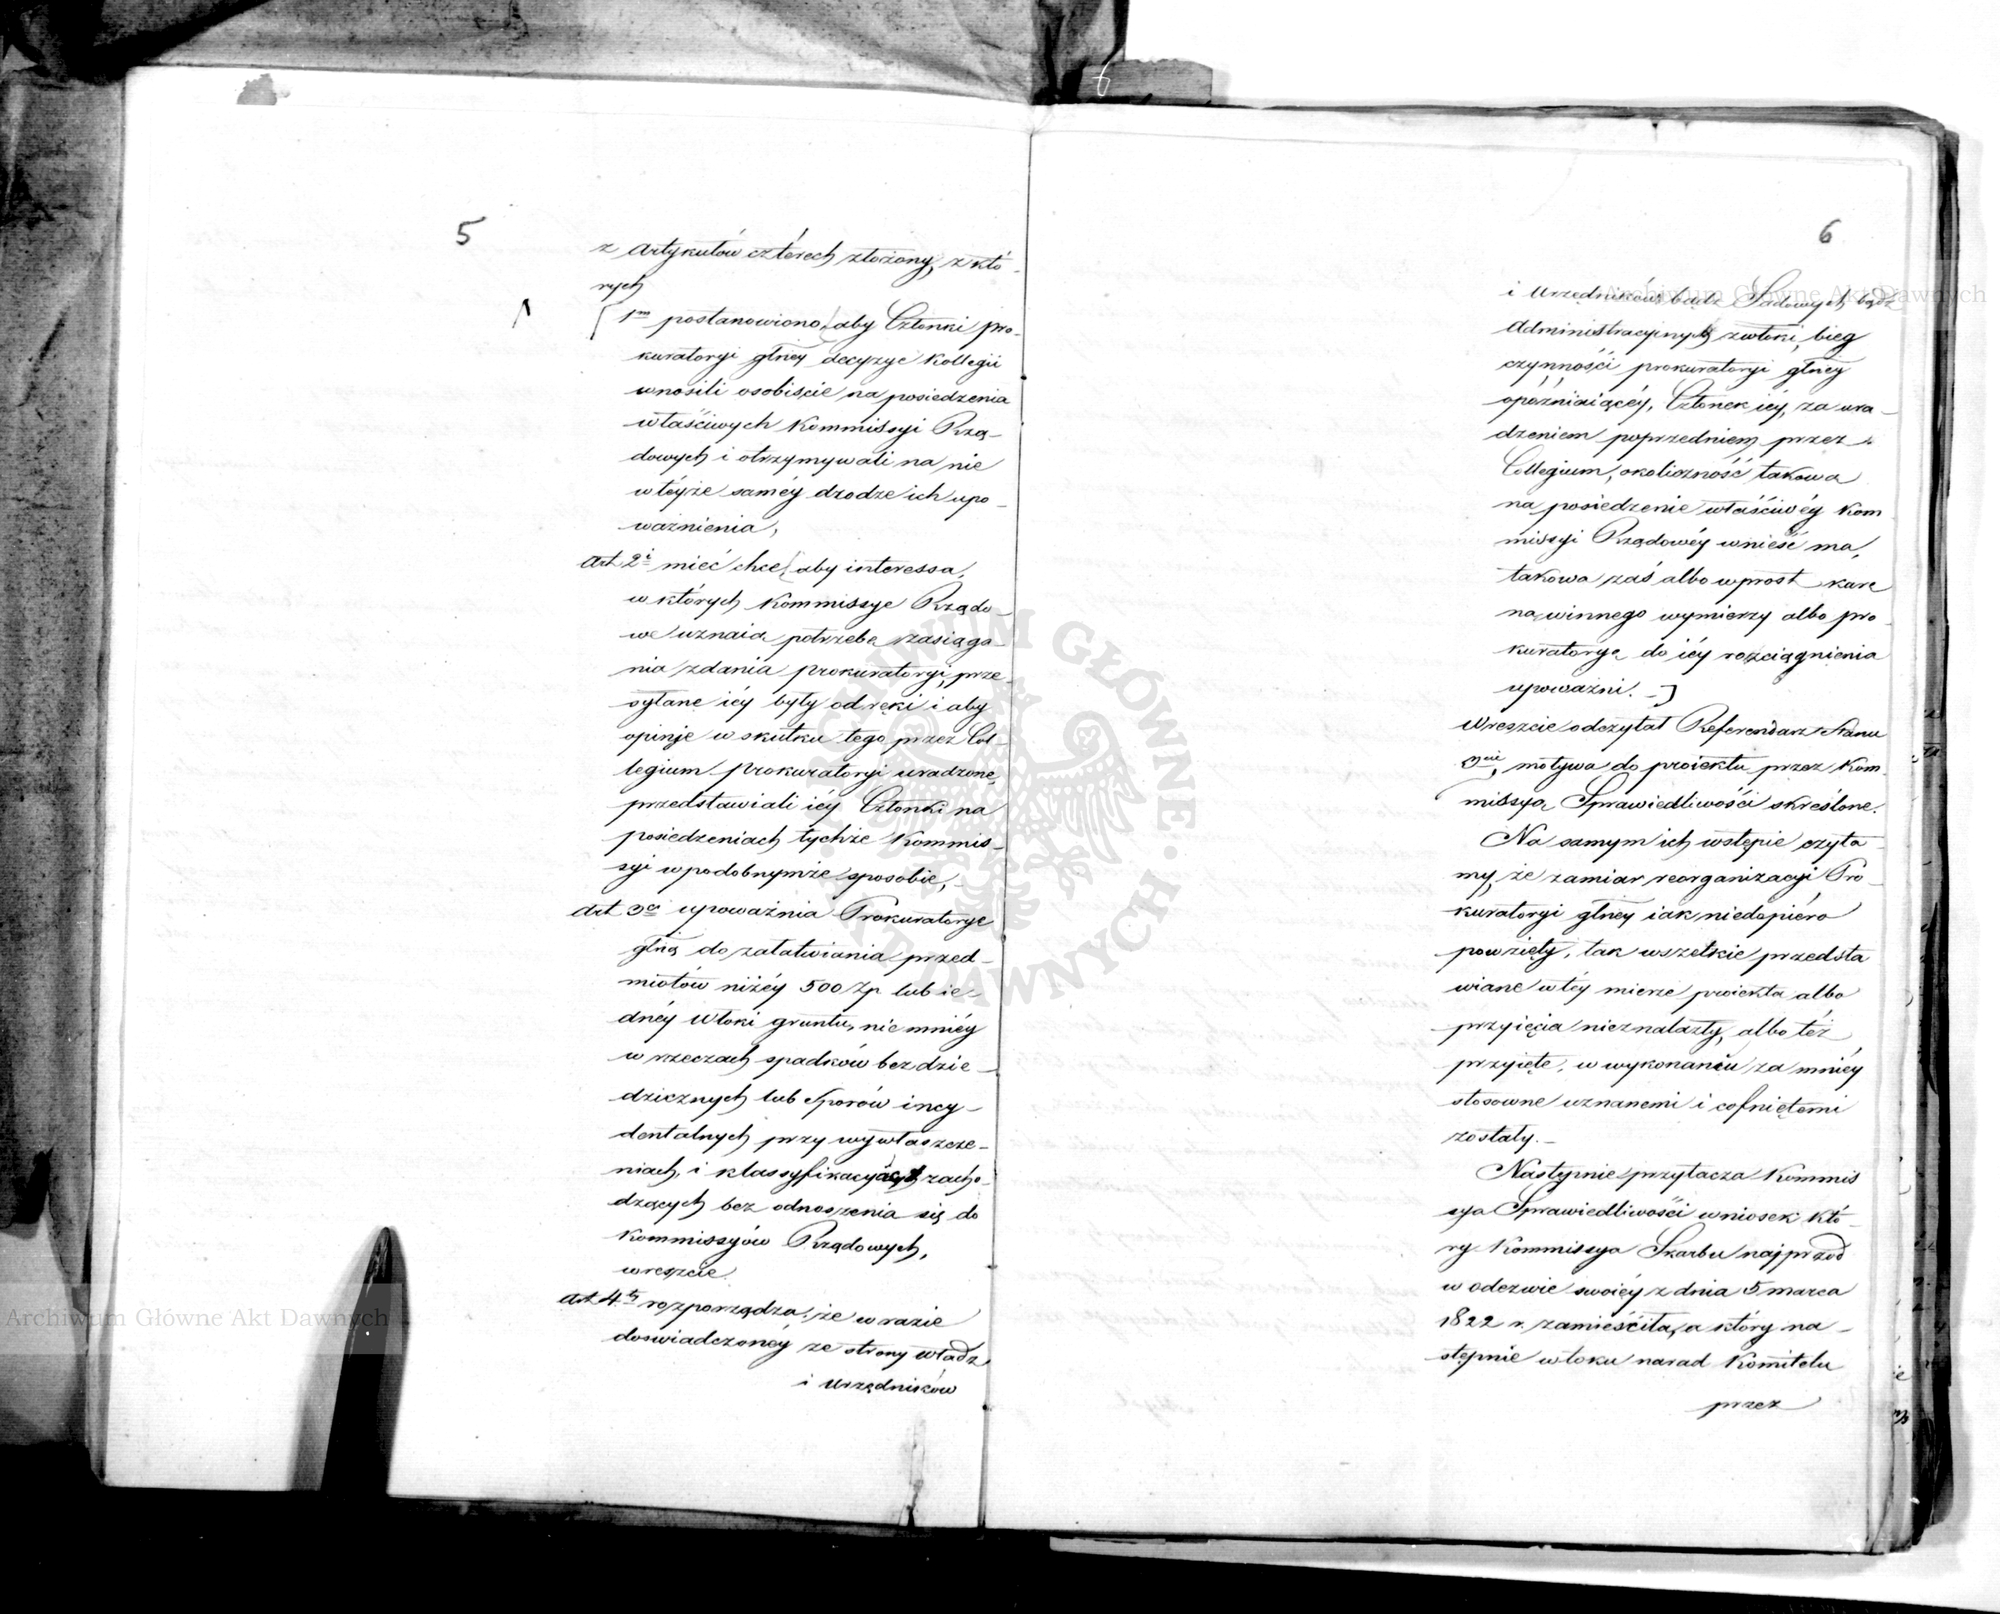 5
z Artykułów czterech złożony, z któ-
rych
[1m postanowiono, aby Członki pro-
kuratoryi głney decyzye Kollegii
wnosili osobiscie na posiedzenia
właściwych Kommissyi Rzą-
dowych i otrzymywali na nie
w téyże saméy drodze ich upo-
ważnienia,
Art 2i mieć chce, aby interessa,
w których Kommissye Rządo-
we uznaią potrzebę zasiąga-
nia zdania Prokuratoryi, prze-
syłane iéy były od ręki i aby
opinje w skutku tego przez Col-
legium Prokuratoryi uradzone,
przedstawiali iéy Członki na
posiedzeniach tychże Kommis-
syi w podobnymże sposobie,
Art 3ci upoważnia Prokuratorye
głną do załatwiania przed-
miotów niżéy 500 Zp lub ie-
dnéy Włoki gruntu, nie mniéy
w rzeczach spadków bezdzie-
dzicznych lub Sporów incy-
dentalnych przy wywłaszcze-
niach, i klassyfikacyiach zacho-
dzących bez odnoszenia się do
Kommissyów Rządowych,
wreszcie
Art 4ty rozporządza, że w razie
doswiadczonéy ze strony władz
i Urzędników
6
i Urzędników bądź Sądowych bądź
Administracyinych zwłoki, bieg
czynności prokuratoryi głney
opóźniaiącéy, Członek iéy, za ura-
dzeniem poprzedniem przez
Collegium, okoliczność takowa
na posiedzenie właściwéy Kom
missyi Rządowéy wnieść ma,
takowa zaś albo wprost karę
na winnego wymierzy albo pro
kuratoryą do iéy rozciągnienia
upoważni. -]
Wreszcie odczytał Referendarz Stanu
3cie, motywa do proiektu przez Kom-
missyą Sprawiedliwości skreślone.
Na samym ich wstępie czyta-
my, że zamiar reorganizacyi Pro-
kuratoryi głney iak niedopiéro
powzięty, tak wszelkie przedsta
wiane w téy mierze proiekta albo
przyięcia nieznalazły, albo też
przyięte, w wykonaniu za mniéy
stosowne uznanemi i cofniętemi
zostały. -
Następnie przytacza Kommis
sya Sprawiedliwości wniosek któ-
ry Kommissya Skarbu najprzód
w odezwie swoiéy z dnia 5 marca
1822 r. zamieściła, a który na-
stępnie w toku narad Komitetu
przez
Archiwum Główne Akt Dawnych
Archiwum Główne Akt Dawnych
ARCHIWUM GŁÓWNE AKT DAWNYCH